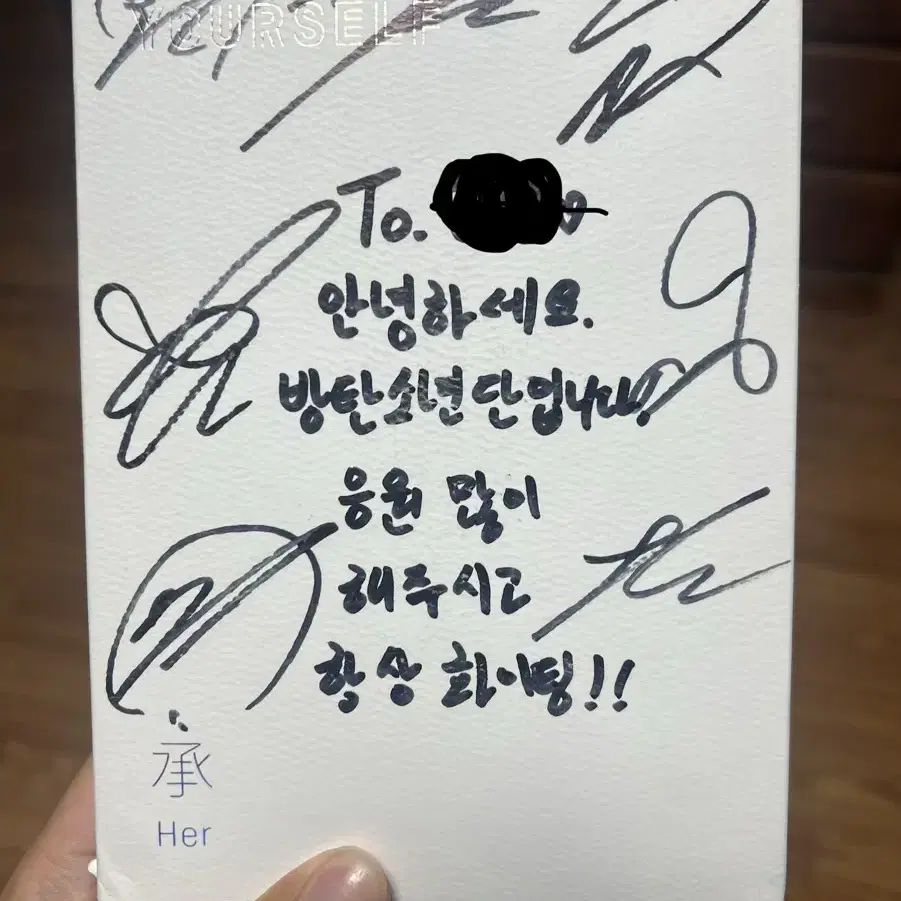 YOURSELF
To.
안녕하세요.
방탄소년단입니다!
응원 많이
해주시고
항상 화이팅!!
承
Her